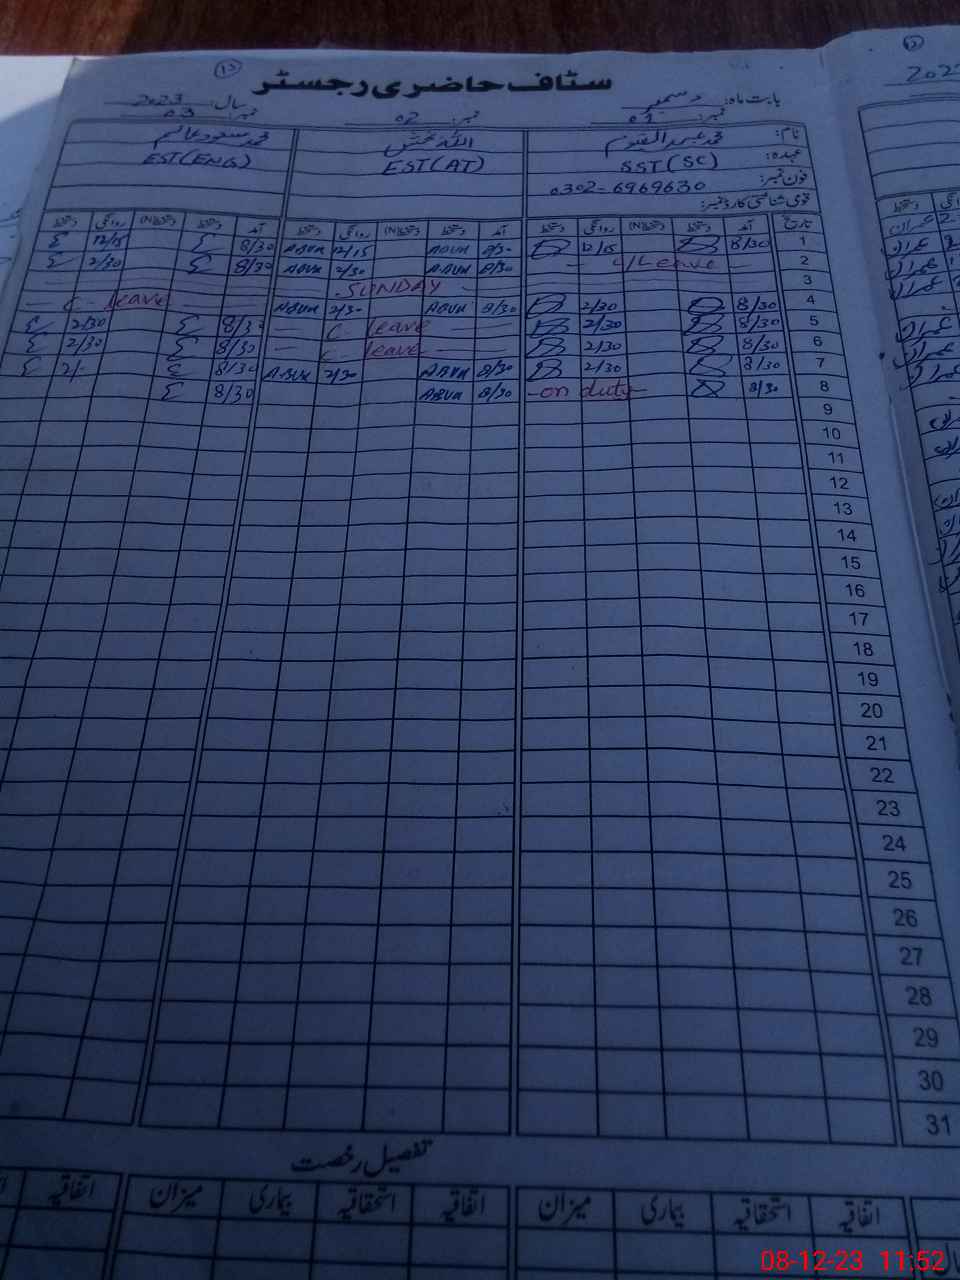 ۱۵
سٹاف حاضری رجسٹر
بابت ماہ: دسمبر سال: 2023
نمبر: 01 نمبر: 02 نمبر: 03
نام: محمد عبدالقیوم اللہ بخش محمد مسعود عالم
عہدہ: SST (SC) EST (AT) EST (ENG)
فون نمبر: 0302-6969630
قومی شناختی کارڈ نمبر:
تاریخ آمد دستخط دستخط(N) روانگی دستخط آمد دستخط دستخط(N) روانگی دستخط آمد دستخط دستخط(N) روانگی دستخط
1 8/30 12/15 8/30 ABUX 12/15 ABUX 8/30 12/15
2 C/Leave 8/30 ABUX 2/30 ABUX 8/30 2/30
3 SUNDAY
4 8/30 2/30 8/30 ABUX 2/30 ABUX C-leave
5 8/30 2/30 C leave 8/30 2/30
6 8/30 2/30 C leave 8/30 2/30
7 8/30 2/30 8/30 ABUX 2/30 ABUX 8/30 2/-
8 8/30 -on duty- 8/30 ABUX 8/30
9
10
11
12
13
14
15
16
17
18
19
20
21
22
23
24
25
26
27
28
29
30
31
تفصیل رخصت
اتفاقیہ استحقاقیہ بیماری میزان اتفاقیہ استحقاقیہ بیماری میزان اتفاقیہ
08-12-23 11:52